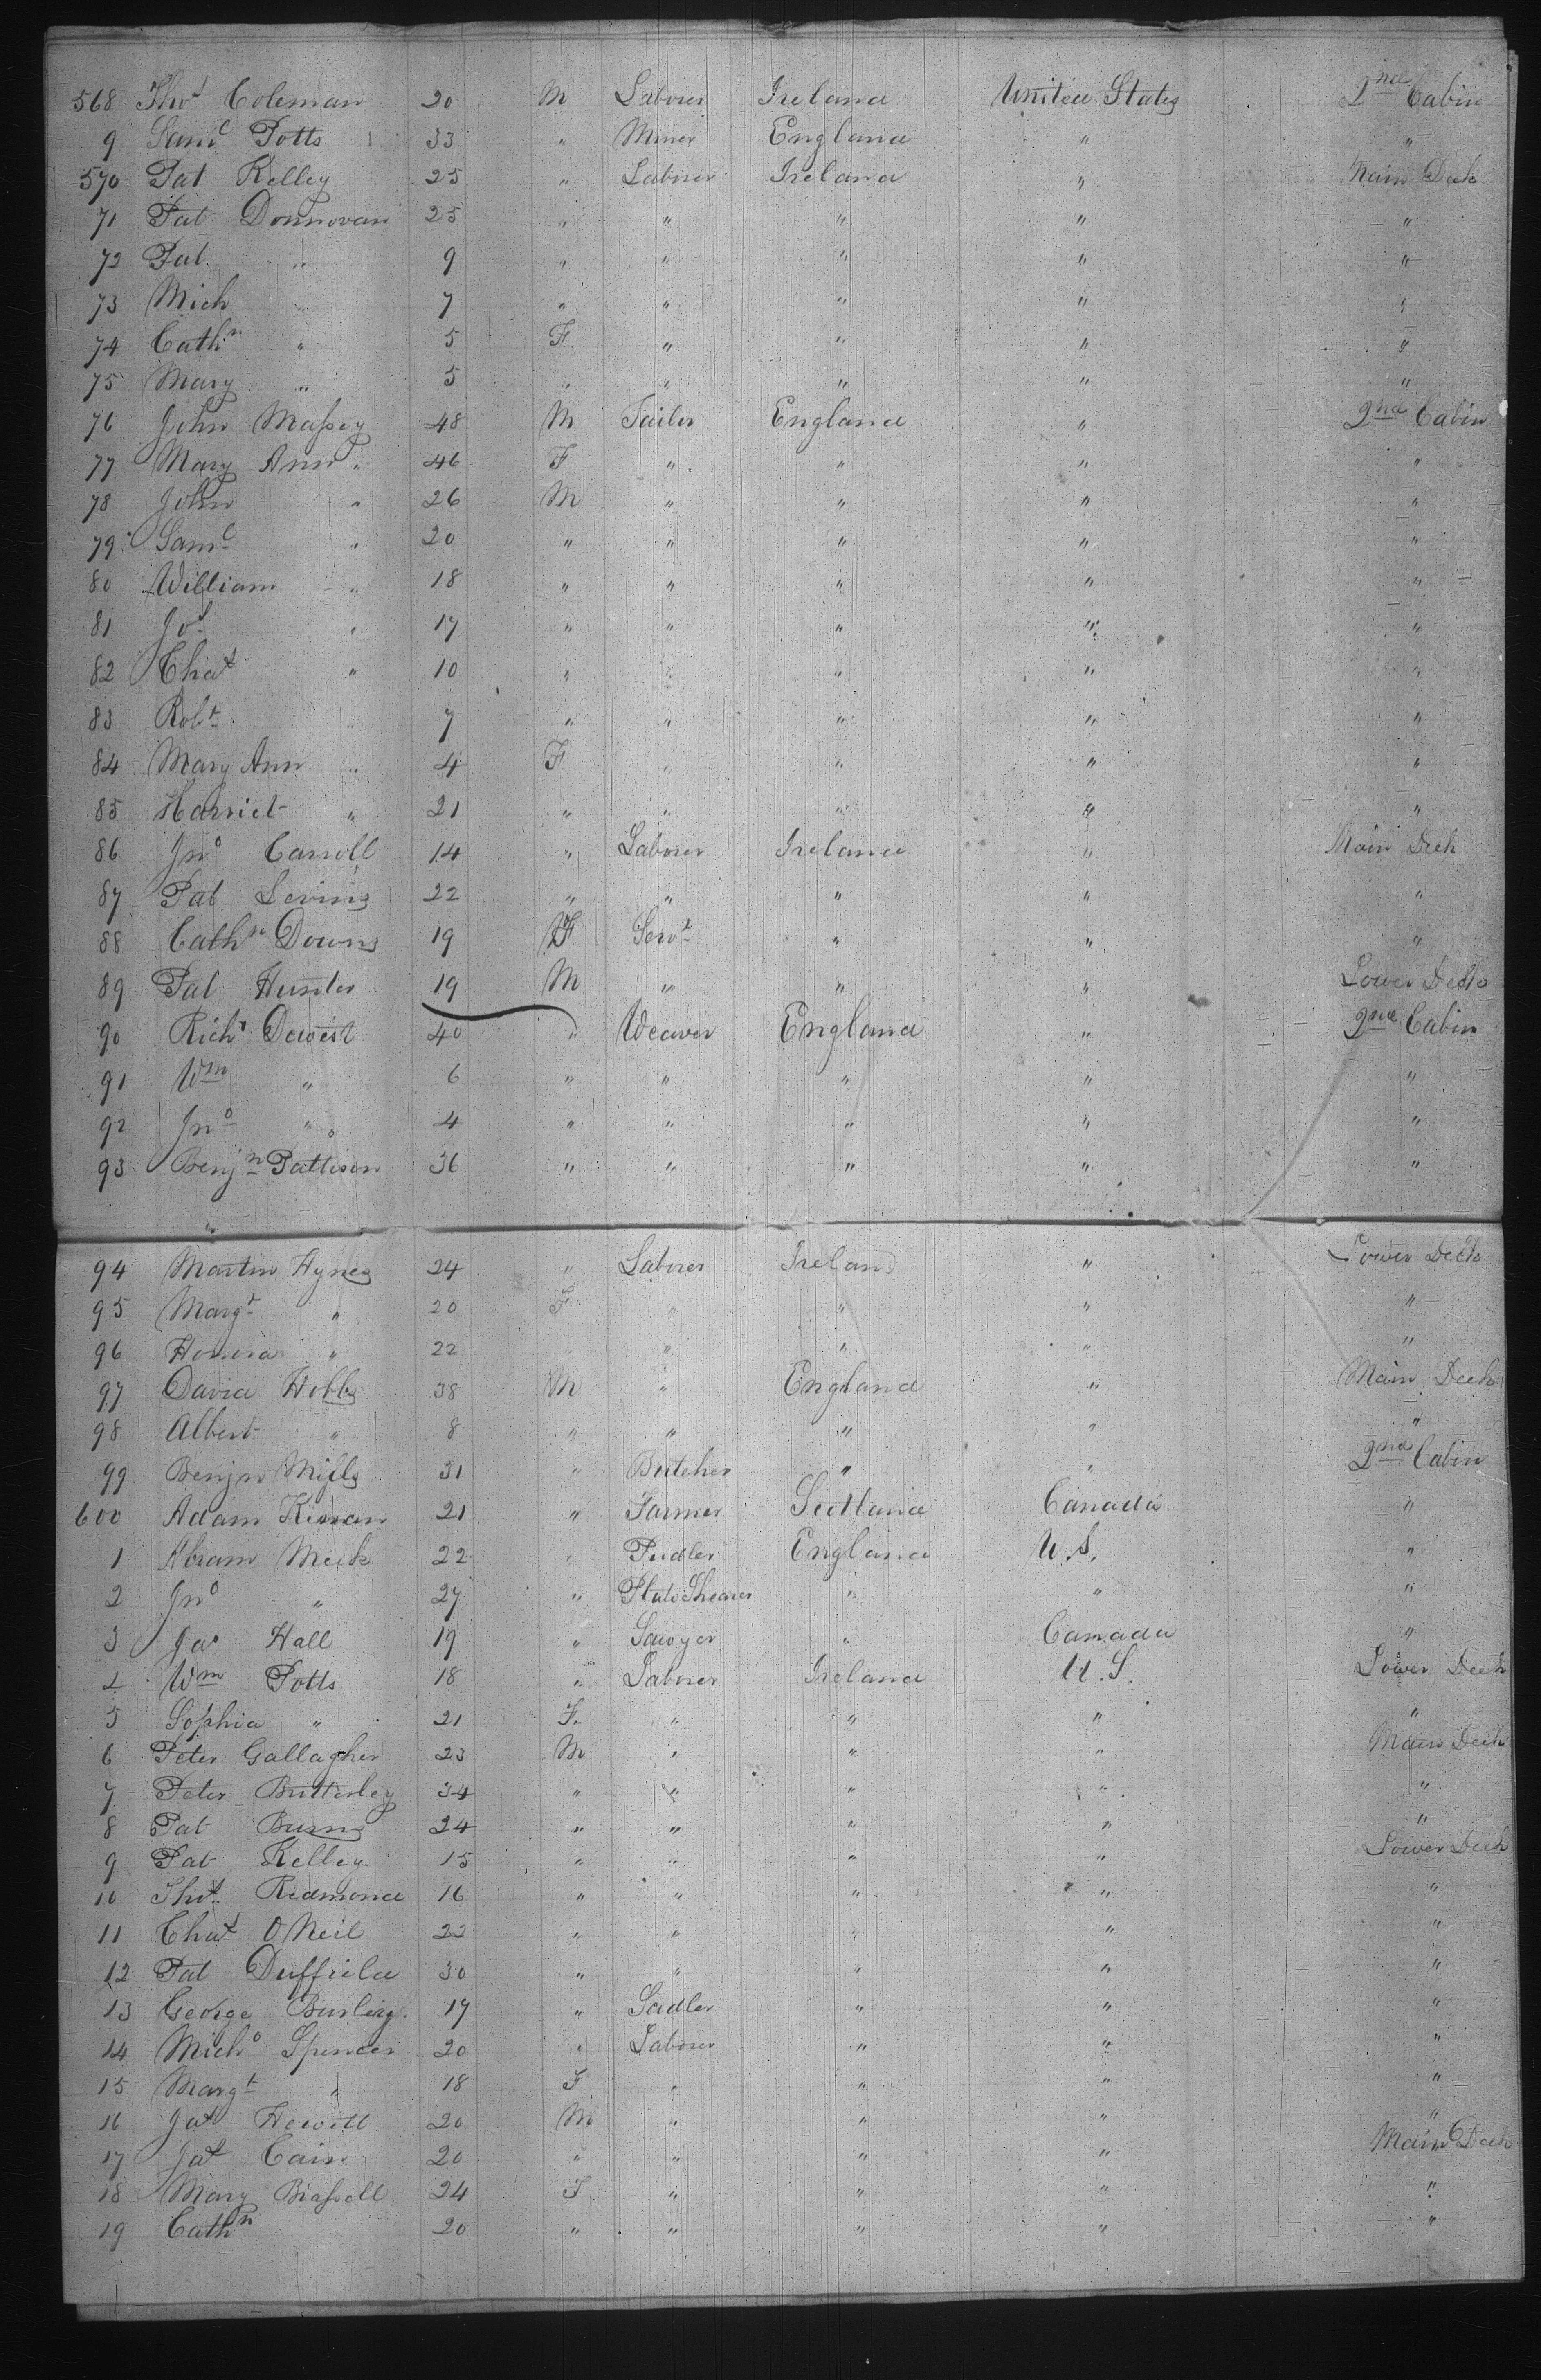 568 Thos Coleman 20 M Laborer Ireland United States 2nd Cabin
9 Saml Potts 33 " Miner England " "
570 Pat Kelley 25 " Laborer Ireland " Main Deck
71 Pat Donnovan 25 " " " " "
72 Pat " 9 " " " " "
73 Mich " 7 " " " " "
74 Cathn " 5 F " " " "
75 Mary " 5 " " " " "
76 John Massey 48 M Tailor England " 2nd Cabin
77 Mary Ann " 46 F " " " "
78 John " 26 M " " " "
79 Saml " 20 " " " " "
80 William " 18 " " " " "
81 Jos " 17 " " " " "
82 Chas " 10 " " " " "
83 Robt " 7 " " " " "
84 Mary Ann " 4 F " " " "
85 Harriet " 21 " " " " "
86 Jno Carroll 14 " Laborer Ireland " Main Deck
87 Pat Levins 22 " " " " "
88 Cathn Downs 19 F Servt " " "
89 Pat Hunter 19 M " " " Lower Deck
90 Richd 40 " Weaver England " 2nd Cabin
91 Wm " 6 " " " " "
92 Jno " 4 " " " " "
93 Benjn Pattison 36 " " " " "
"
94 Martin Hynes 24 " Laborer Ireland " Lower Deck
95 Margt " 20 F " " " "
96 Honora " 22 " " " "
97 David Hobbs 38 M " England " Main Deck
98 Albert " 8 " " " " "
99 Benjn 31 " Butcher " " 2nd Cabin
600 Adam 21 " Farmer Scotland Canada "
1 Abram Meek 22 " Pudler England U.S. "
2 Jno " 27 " Plate Shearer " " "
3 Jas Hall 19 " Sawyer " Canada "
4 Wm Potts 18 " Laborer Ireland U.S. Lower Deck
5 Sophia " 21 F. " " " "
6 Peter Gallagher 23 M " " " Main Deck
7 Peter Butterley 34 " " " " "
8 Pat Burns 24 " " " " "
9 Pat Kelley 15 " " " " Lower Deck
10 Thos Redmond 16 " " " " "
11 Chas O Neil 22 " " " " "
12 Pat Duffield 30 " " " " "
13 George 17 " Sadler " " "
14 Michl Spencer 20 " Laborer " " "
15 Margt " 18 F " " " "
16 Jas Hewitt 20 M " " " "
17 Jas Cain 20 " " " " Main Deck
18 Mary Brassell 24 F " " " "
19 Cathn 20 " " " " "